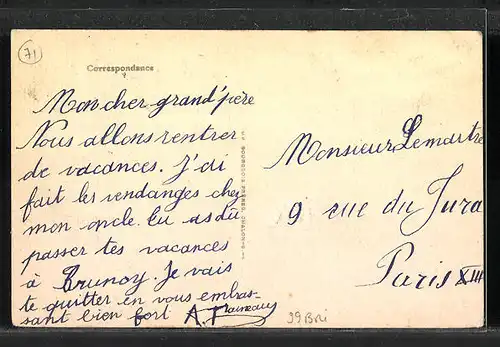 71
Correspondance
Mon cher grand'père
Nous allons rentrer
de vacances. J'ai
fait les vendanges chez
mon oncle. Tu as dû
passer tes vacances
à Brunoy. Je vais
te quitter en vous embras-
sant bien fort A.
Monsieur Lemartre
9 rue du Jura
Paris XIII
BOURGEOIS FRÈRES, CHALON-S
39 Bri